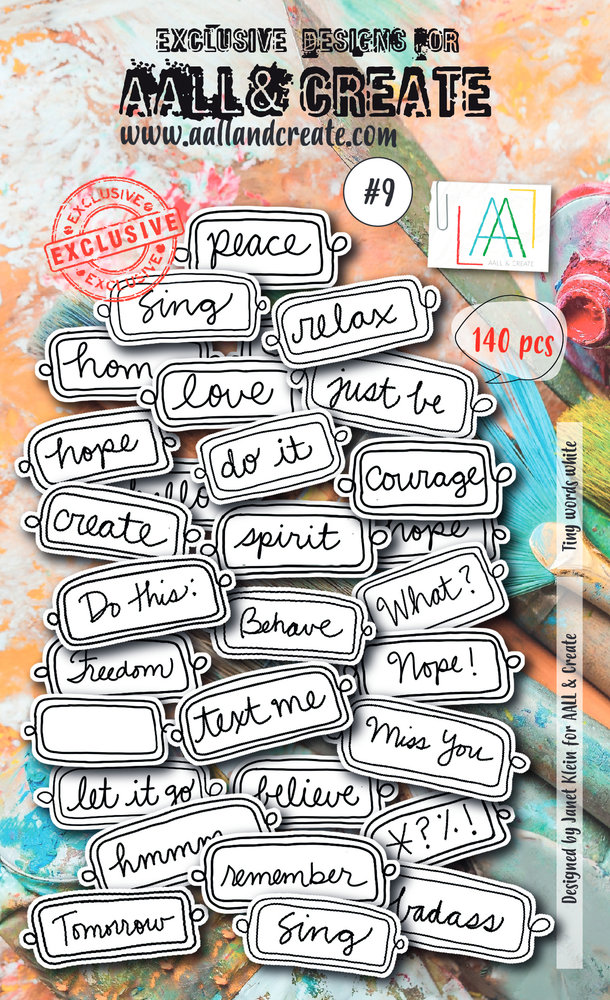 EXCLUSIVE DESIGNS FOR
AALL & CREATE
www.aallandcreate.com
#9
AA
AALL & CREATE
EXCLUSIVE
EXCLUSIVE
EXCLUSIVE
140 pcs
peace
Sing
relax
hom
love
just be
hope
do it
courage
hello
create
spirit
hope
Do this:
Behave
What?
Freedom
Nope!
text me
Miss You
let it go
believe
X?%!
hmmm
remember
badass
Tomorrow
Sing
Tiny words white
Designed by Janet Klein for AALL & Create